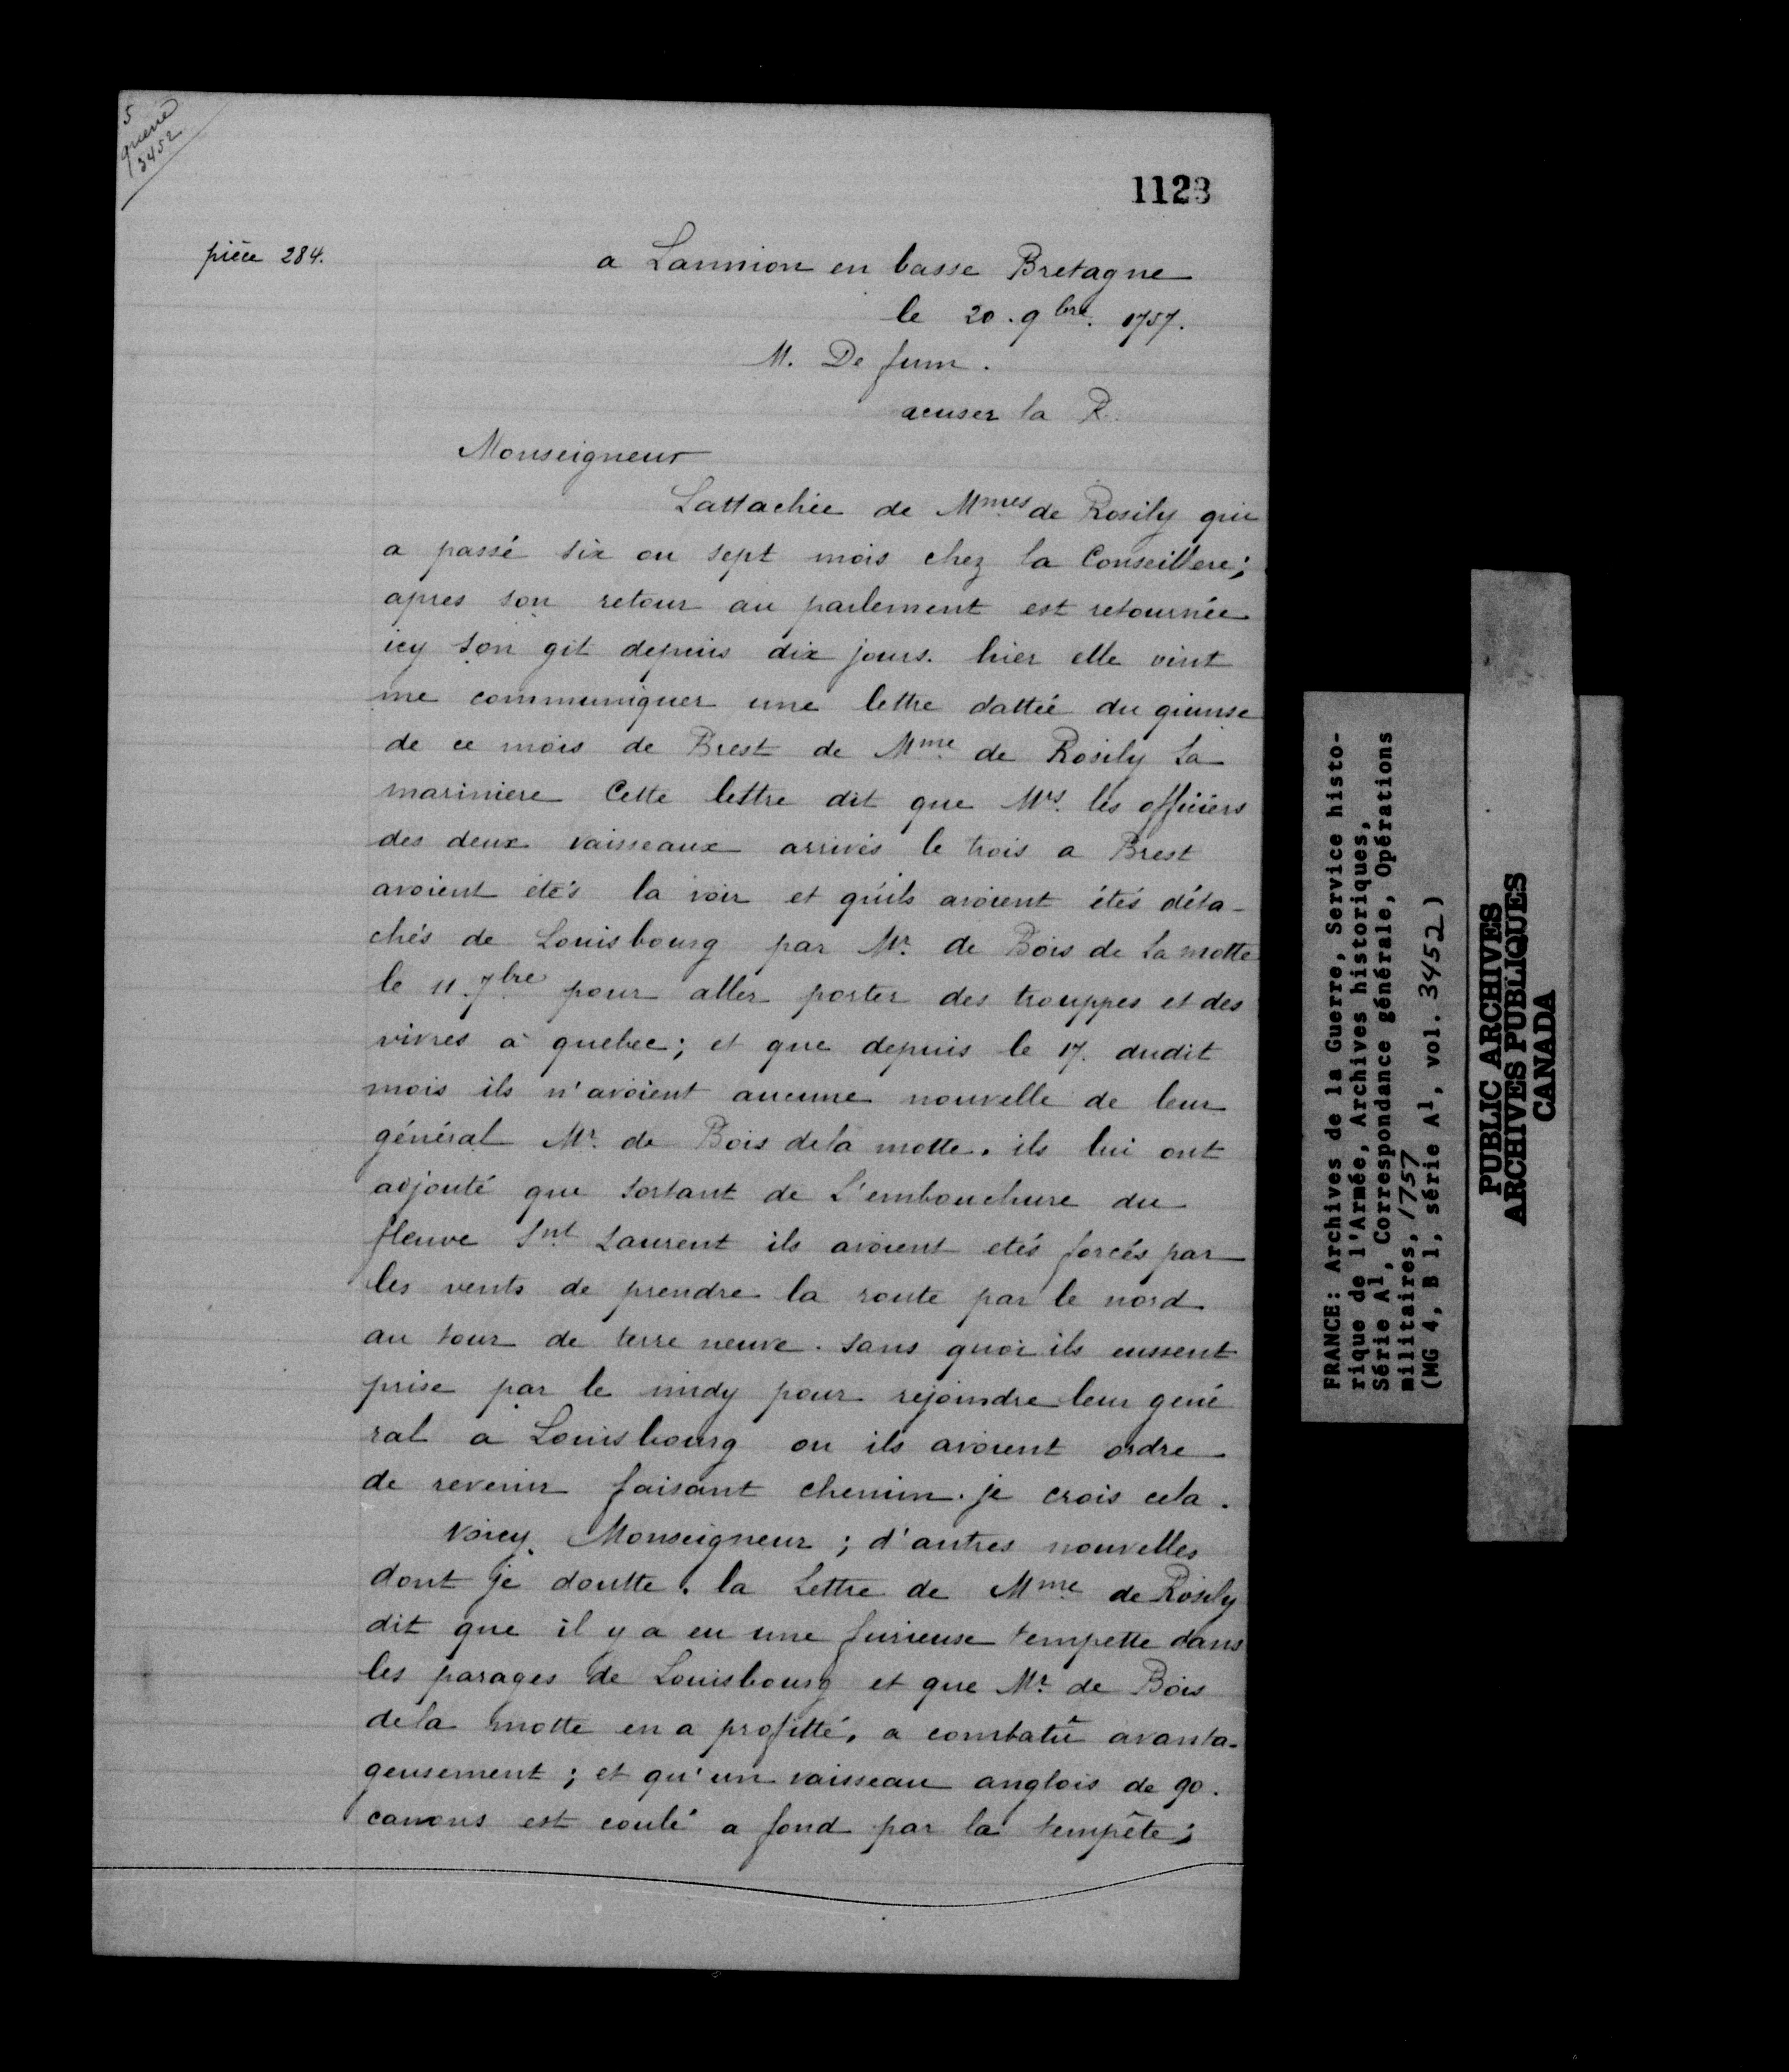 5
guerre
3452
1123
pièce 284.
a Lannion en basse Bretagne
le 20. 9bre. 1757.
M. De fum.
acuser la R.
Monseigneur
Lattachée de Mmes de Rosily qui
a passé six ou sept mois chez la Conseillere;
apres son retour au parlement est retournée
icy son git depuis dix jours. hier elle vint
me communiquer une lettre dattée du quinse
de ce mois de Brest de Mme de Rosily La
mariniere Cette lettre dit que Mrs. les officiers
des deux vaisseaux arrivés le trois a Brest
avoient étés la voir et qu'ils avoient étés déta-
chés de Louisbourg par Mr. de Bois de La motte
le 11. 7bre pour aller porter des trouppes et des
vivres à quebec; et que depuis le 17. dudit
mois ils n'avoient aucune nouvelle de leur
général Mr. de Bois dela motte. ils lui ont
adjouté que sortant de L'embouchure du
fleuve Snt Laurent ils avoient etés forcés par
les vents de prendre la route par le nord
au tour de terre neuve. sans quoi ils eussent
prise par le midy pour rejoindre leur gené
ral a Louisbourg ou ils avoient ordre
de revenir faisant chemin. je crois cela.
Voicy Monseigneur; d'autres nouvelles
dont je doutte. la Lettre de Mme de Rosily
dit que il y a eu une furieuse tempette dans
les parages de Louisbourg et que Mr. de Bois
dela motte en a profitté, a combatû avanta-
geusement; et qu'un vaisseau anglois de 90.
canons est coulé a fond par la tempête;
FRANCE: Archives de la Guerre, Service histo-
rique de l'Armée, Archives historiques,
Série A1, Correspondance générale, Opérations
militaires, 1757
(MG 4, B 1, série A1, vol. 3452)
PUBLIC ARCHIVES
ARCHIVES PUBLIQUES
CANADA